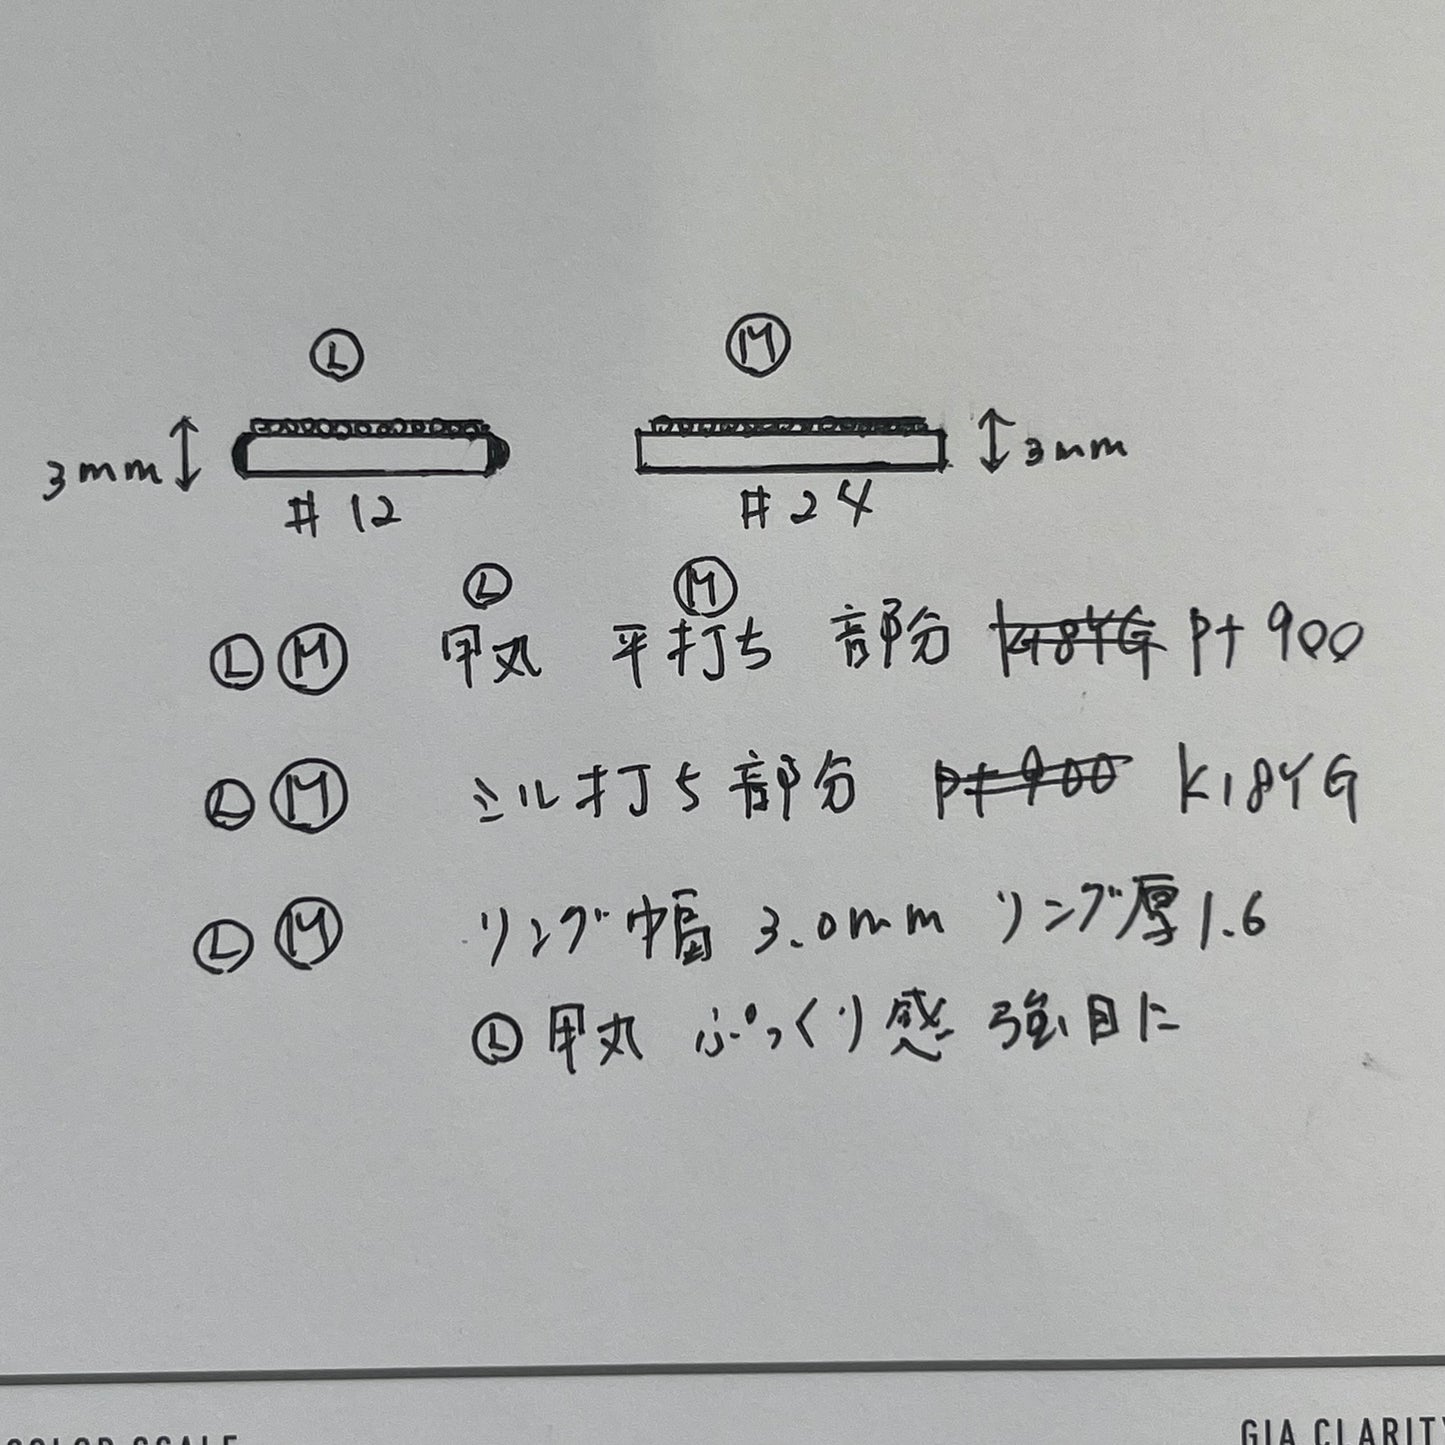 Ⓛ Ⓜ
3mm 3mm
#12 #24
Ⓛ Ⓜ
Ⓛ Ⓜ 甲丸 平打ち 部分 K18YG Pt900
Ⓛ Ⓜ ミル打ち部分 Pt900 K18YG
Ⓛ Ⓜ リング幅 3.0mm リング厚1.6
Ⓛ甲丸 ぷっくり感 強目に
COLOR SCALE GIA CLARITY